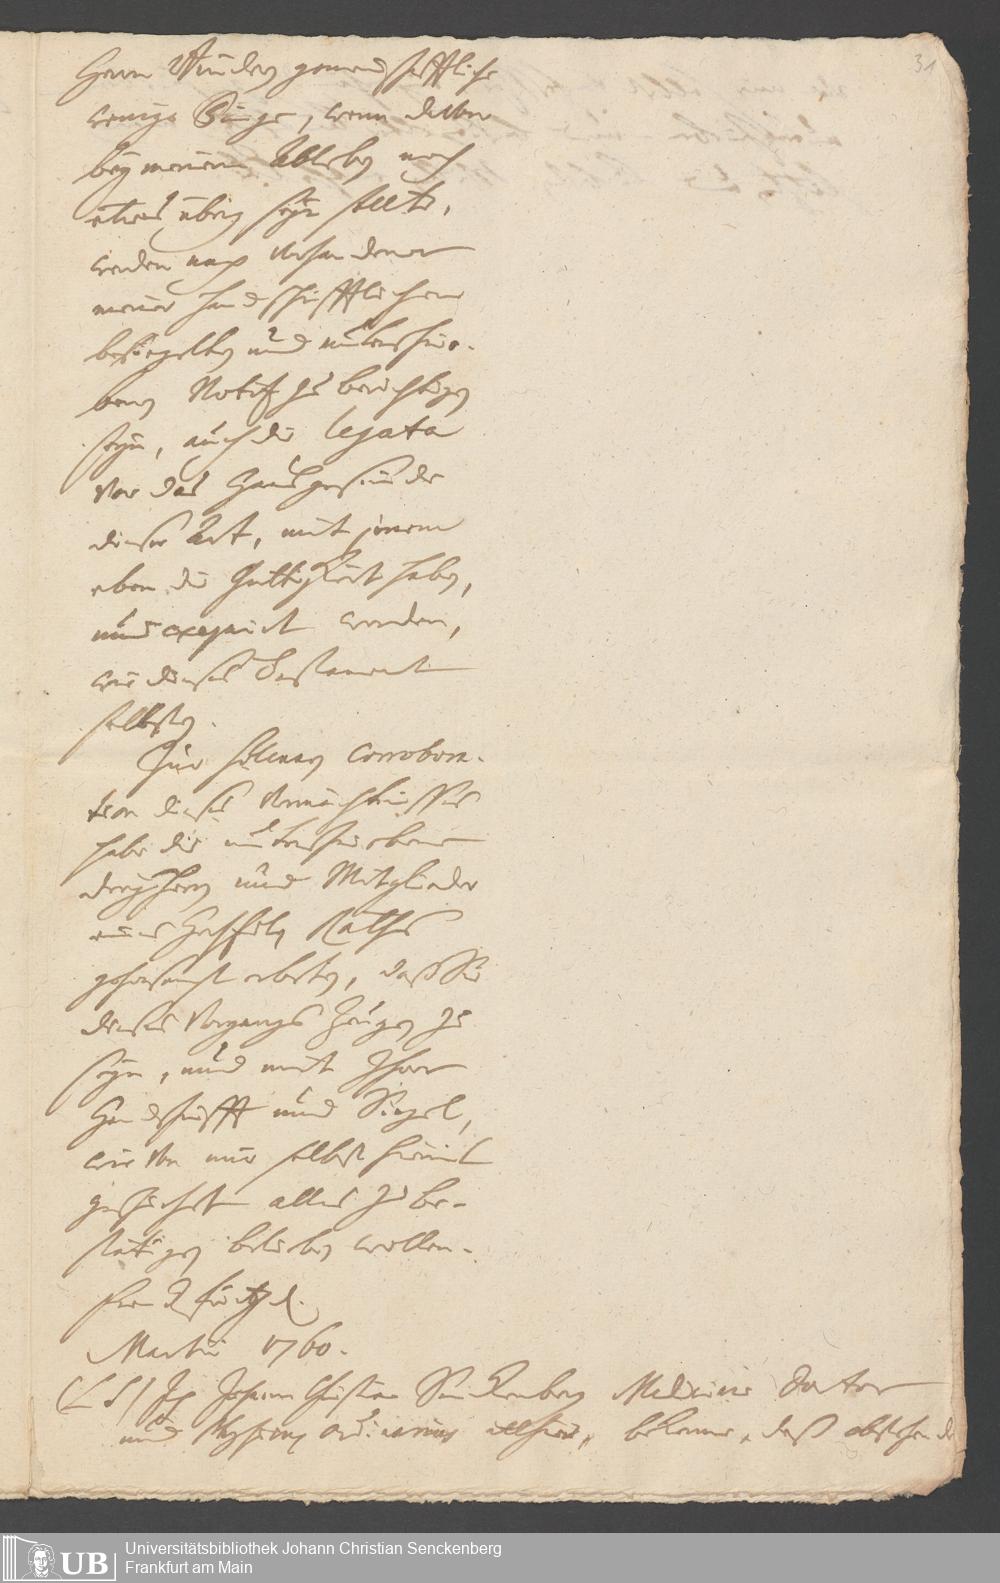 31
Herrn Kindern gemeinschafftliche
wenige Dinge, wenn deren
bey meinem Ableben noch
etwas übrig seyn sollte,
werden nach vorhandener
meiner handschrifftlichen
besiegelten und unterschrie-
benen Notitz zu berichtigen
seyn, auch die legata
vor das Hausgesinde
dieser Art, mit jenem
eben die Gültigkeit haben,
und exequirt werden,
wie dieses Testament
selbsten.
Zur corrobora-
tion dieses Vermächtnisses
habe die unterschriebene
drey Herren und Mitglieder
eines Raths
gehorsamst erbeten, daß Sie
dieses Vorgangs Zeugen zu
seyn, und mit Ihrer
Handschrifft und Siegel,
wie von mir selbst hiemit
geschiehet alles zu be-
stätigen belieben wollen.
Martii 1760.
(L S) Ich Johann Christian Senckenberg Medicinae Doctor
und Physicus ordinarius allhier, bekenne, daß obstehende
Universitätsbibliothek Johann Christian Senckenberg
UB
Frankfurt am Main